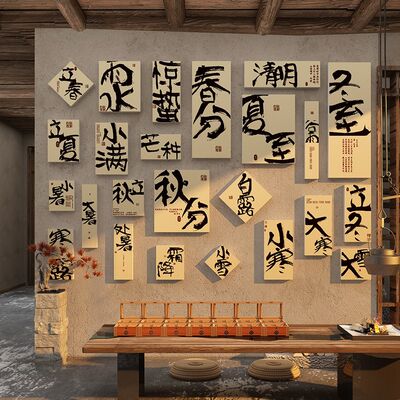 立春
雨水
惊蛰
春分
清明
冬至
立夏
小满
芒种
夏至
谷雨
小暑
大暑
立秋
秋分
白露
处暑
寒露
霜降
小雪
小寒
大寒
立冬
大雪